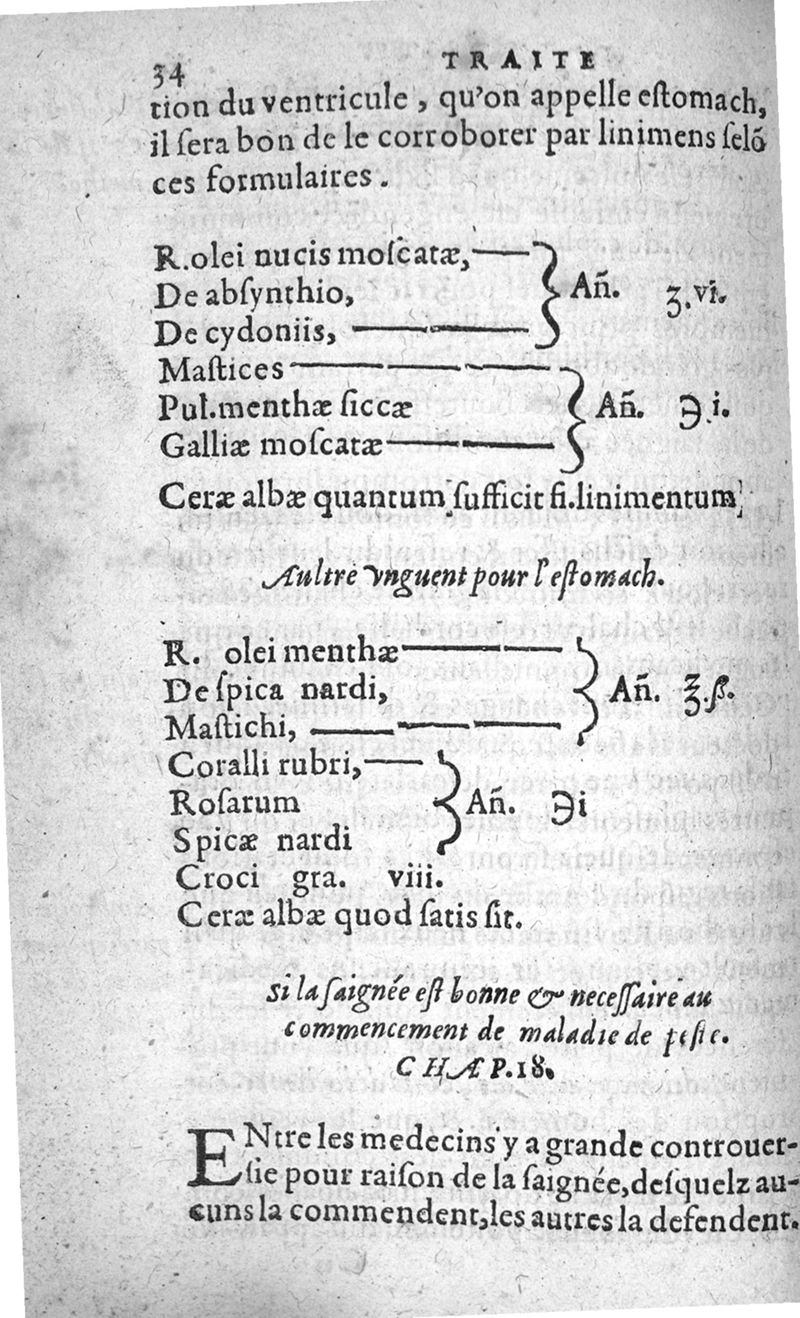 34 TRAITE
tion du ventricule, qu'on appelle eſtomach,
il ſera bon de le corroborer par linimens ſelõ
ces formulaires.
R. olei nucis moſcatæ,
De abſynthio,
De cydoniis,
Añ. ʒ. vi.
Maſtices
Pul. menthæ ſiccæ
Galliæ moſcatæ
Añ. ℈. i.
Ceræ albæ quantum ſufficit fi. linimentum
Aultre vnguent pour l'eſtomach.
R. olei menthæ
De ſpica nardi,
Maſtichi,
Añ. ℥. ß.
Coralli rubri,
Roſarum
Spicæ nardi
Añ. ℈i
Croci gra. viii.
Ceræ albæ quod ſatis ſit.
Si la ſaignée eſt bonne & neceſſaire au
commencement de maladie de peſte.
CHAP. 18.
ENtre les medecins y a grande controuer-
ſie pour raiſon de la ſaignée, deſquelz au-
cuns la commendent, les autres la defendent.